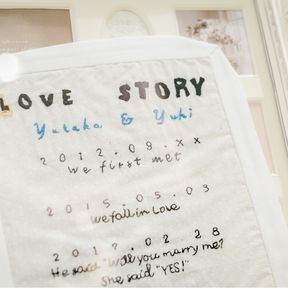 LOVE STORY
Yutaka & Yuki
2012.09.xx
We first met
2015.05.03
We fall in Love
2017.02 28
He said "Will you marry me?
She said "YES!"